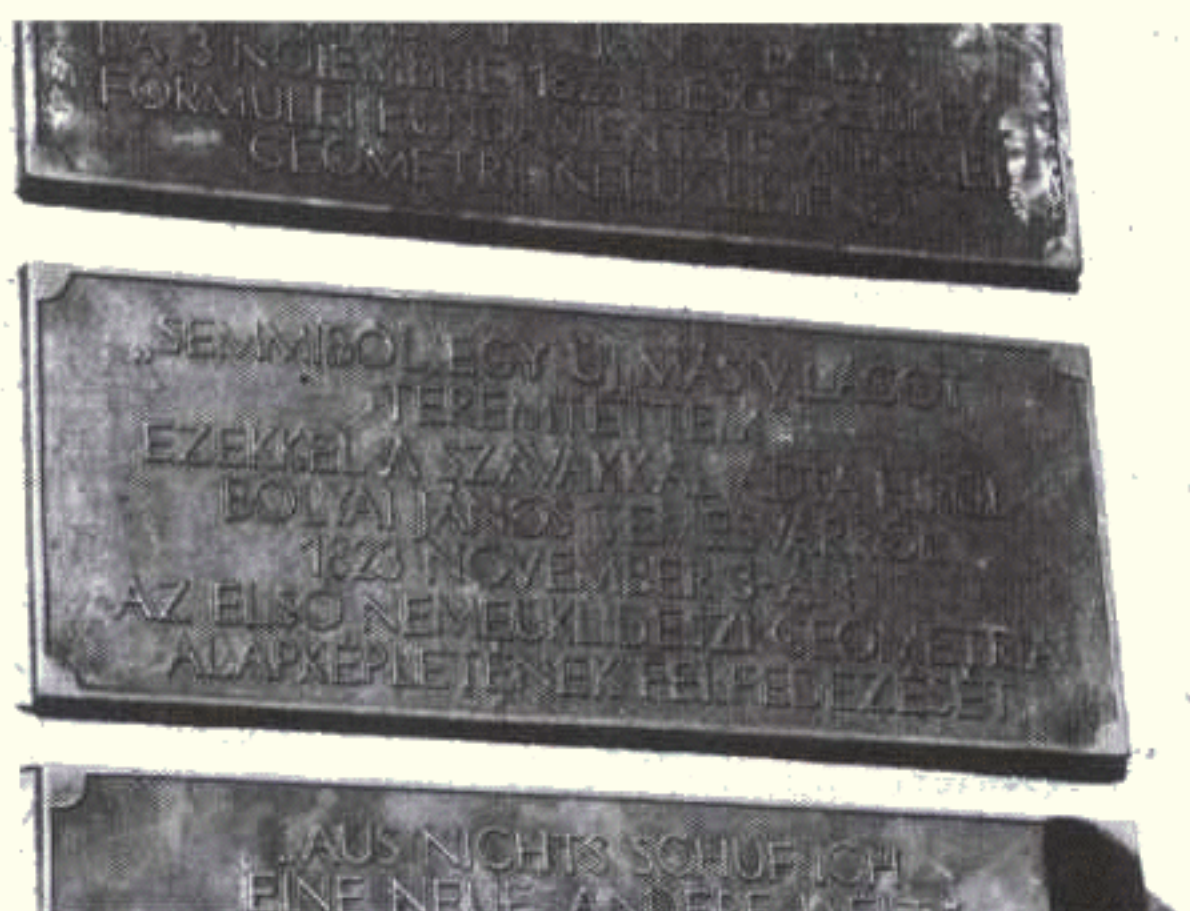 LA 3 NOIEMBRIE 1823 DESCOPERIREA
FORMULEI FUNDAMENTALE A PRIMEI
GEOMETRII NEEUCLIDIENE
„SEMMIBŐL EGY ÚJ MÁS VILÁGOT
TEREMTETTEM”
EZEKKEL A SZAVAKKAL ADTA HÍRÜL
BOLYAI JÁNOS TEMESVÁRRÓL
1823 NOVEMBER 3-ÁN
AZ ELSŐ NEMEUKLIDESZI GEOMETRIA
ALAPKÉPLETÉNEK FELFEDEZÉSÉT
„AUS NICHTS SCHUF ICH
EINE NEUE ANDERE WELT”